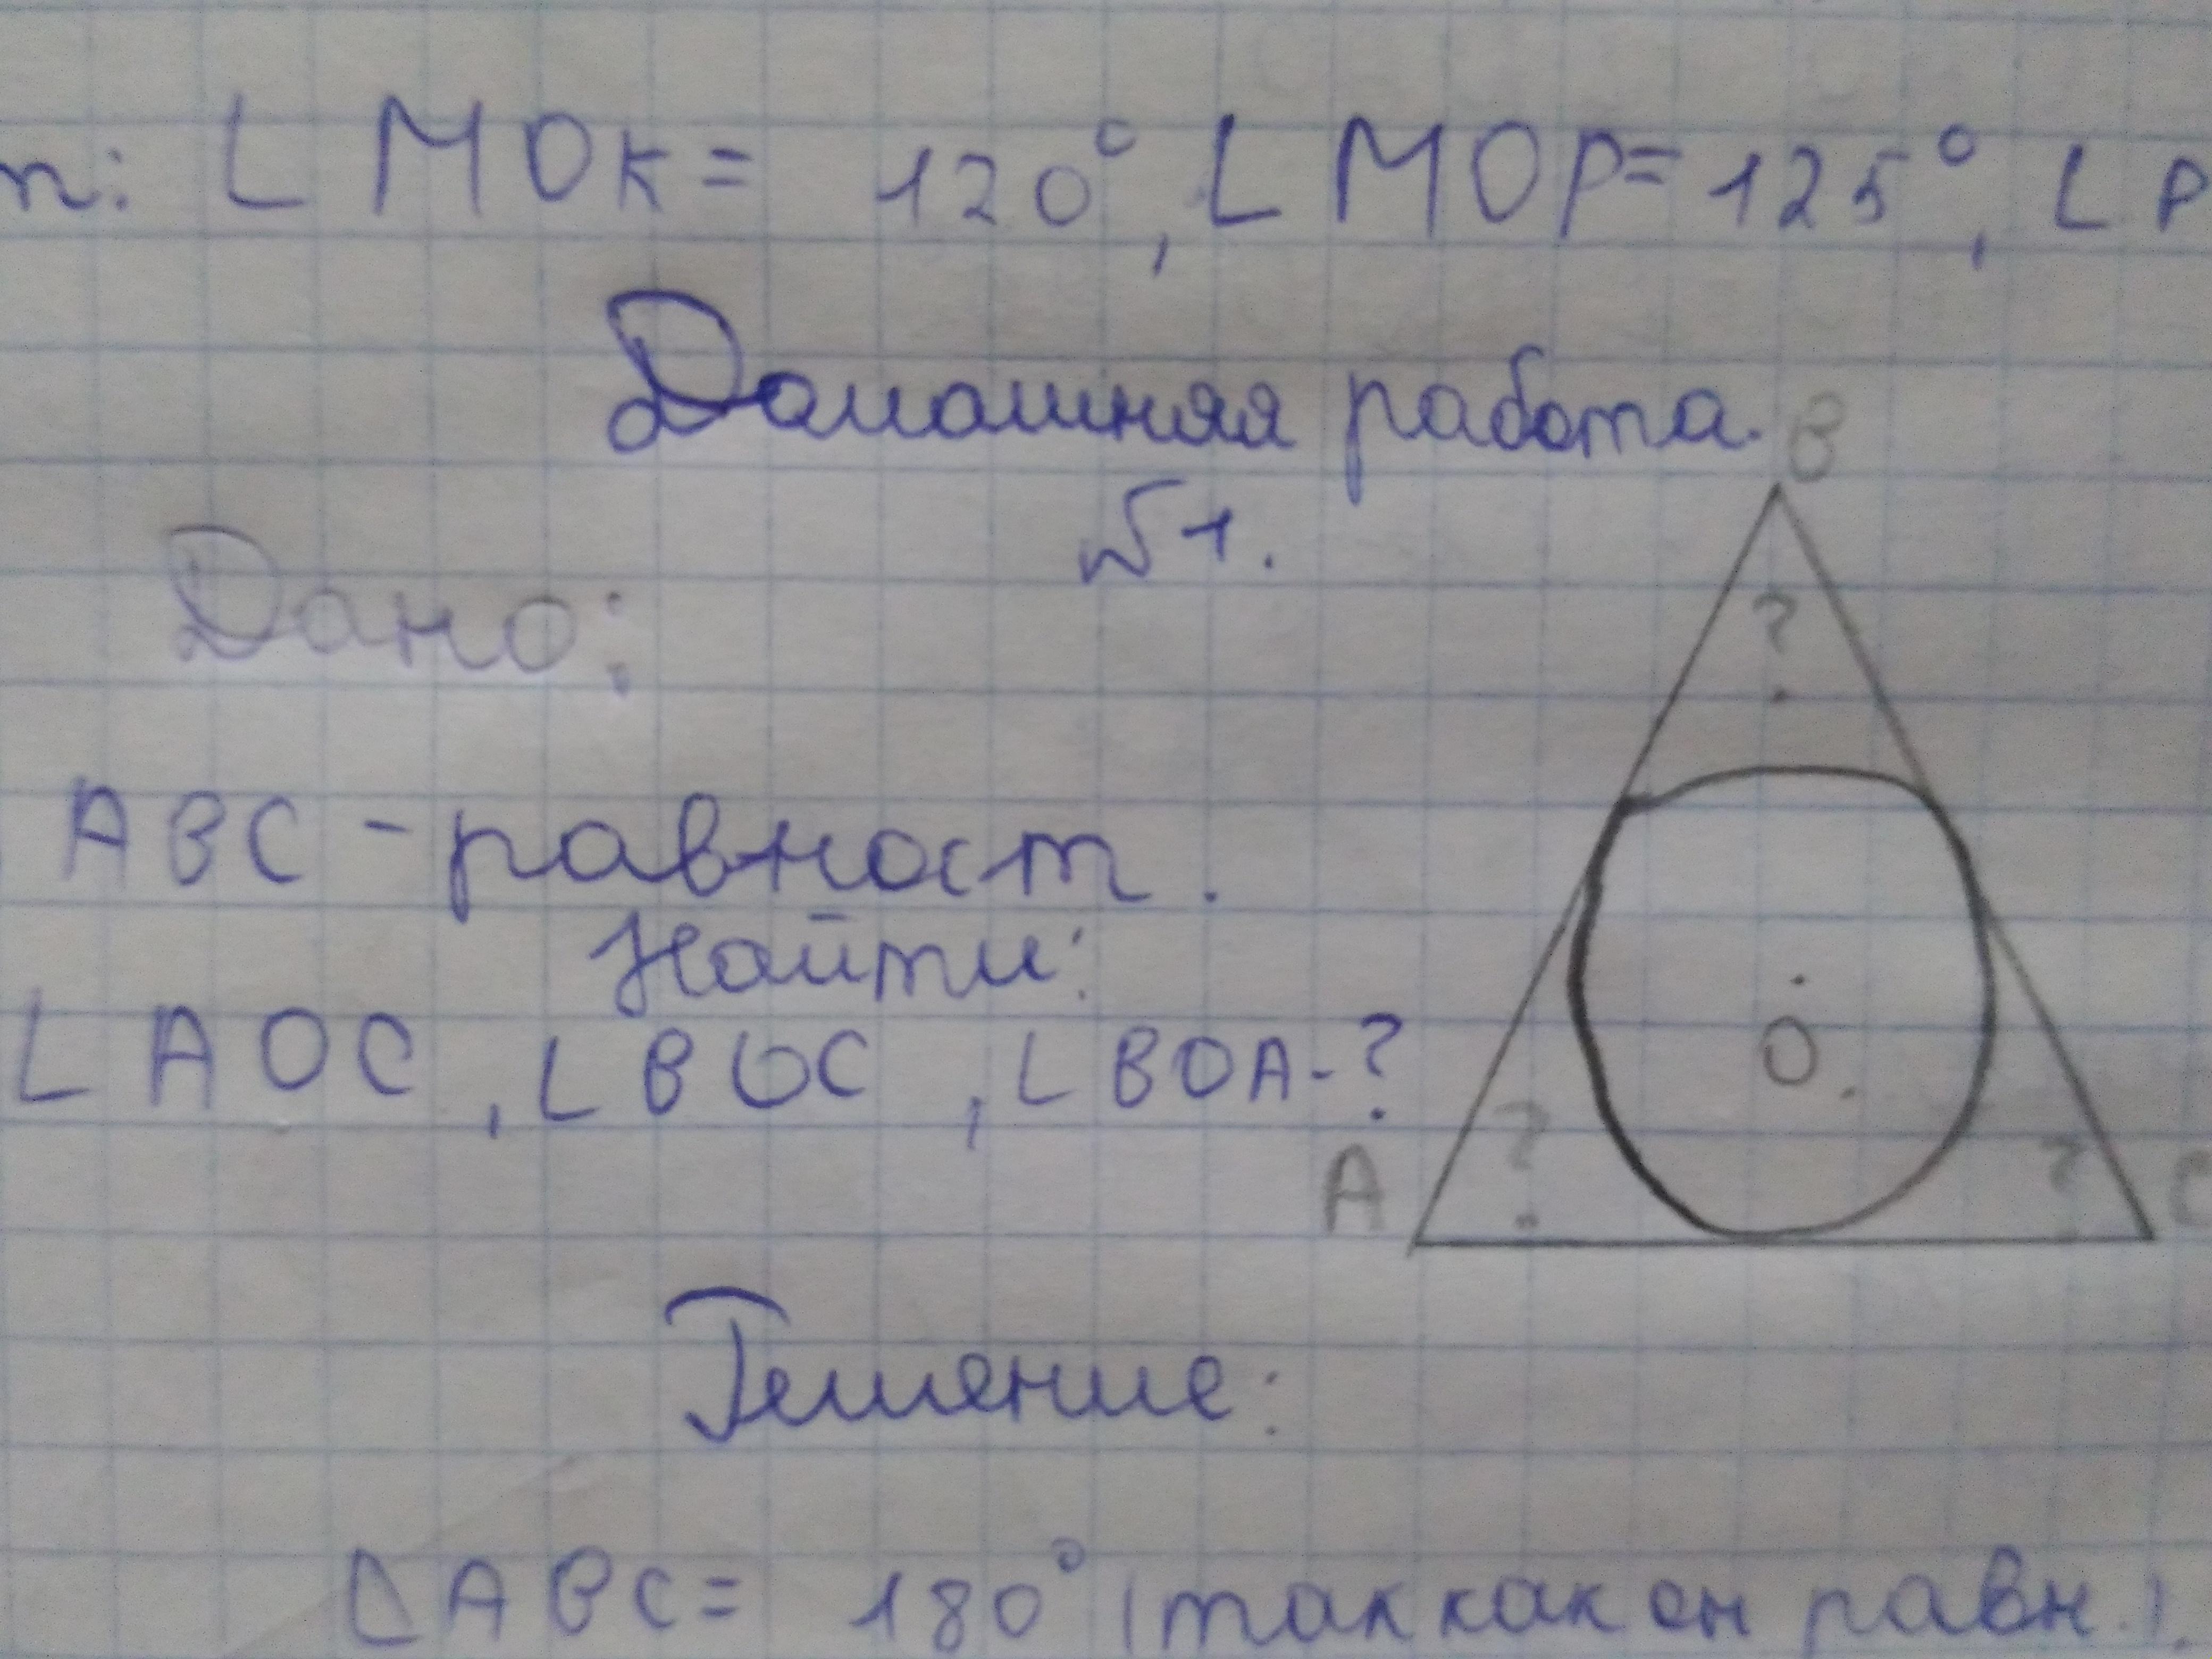 т: ∠ MOK = 120°, ∠ MOP = 125°, ∠ P
Домашняя работа.
№ 1.
Дано:
ABC - равност.
Найти:
∠ AOC, ∠ BOC, ∠ BOA - ?
B
?
O.
A ? ? C
Решение:
△ ABC = 180° (так как он равн.).